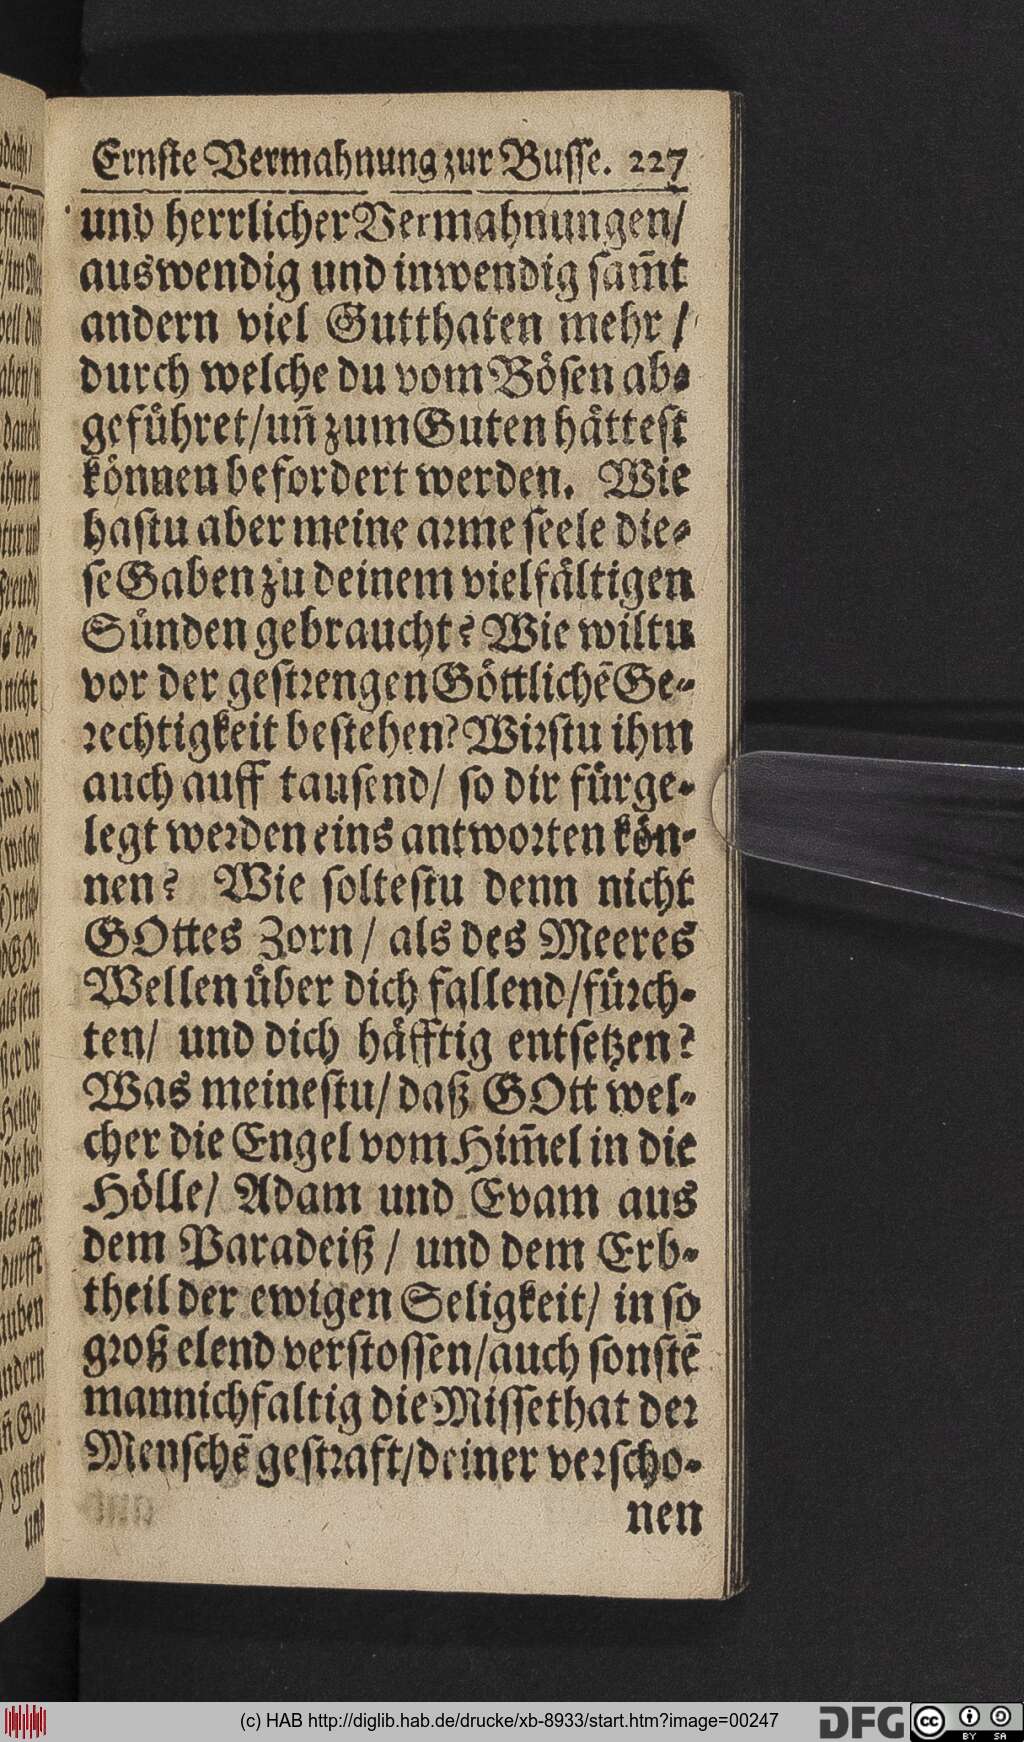 Ernste Vermahnung zur Busse. 227
und herrlicher Vermahnungen/
auswendig und inwendig sam̃t
andern viel Gutthaten mehr/
durch welche du vom Bösen ab-
geführet/ un̄ zum Guten hättest
können befordert werden. Wie
hastu aber meine arme seele die-
se Gaben zu deinem vielfältigen
Sünden gebraucht? Wie wiltu
vor der gestrengen Göttlichē Ge-
rechtigkeit bestehen? Wirstu ihm
auch auff tausend/ so dir fürge-
legt werden eins antworten kön-
nen? Wie soltestu denn nicht
GOttes Zorn/ als des Meeres
Wellen über dich fallend/ fürch-
ten/ und dich häfftig entsetzen?
Was meinestu/ daß GOtt wel-
cher die Engel vom Him̃el in die
Hölle/ Adam und Evam aus
dem Paradeiß/ und dem Erb-
theil der ewigen Seligkeit/ in so
groß elend verstossen/ auch sonstē
mannichfaltig die Missethat der
Menschē gestraft/ deiner verscho-
nen
(c) HAB http://diglib.hab.de/drucke/xb-8933/start.htm?image=00247
DFG
cc BY SA